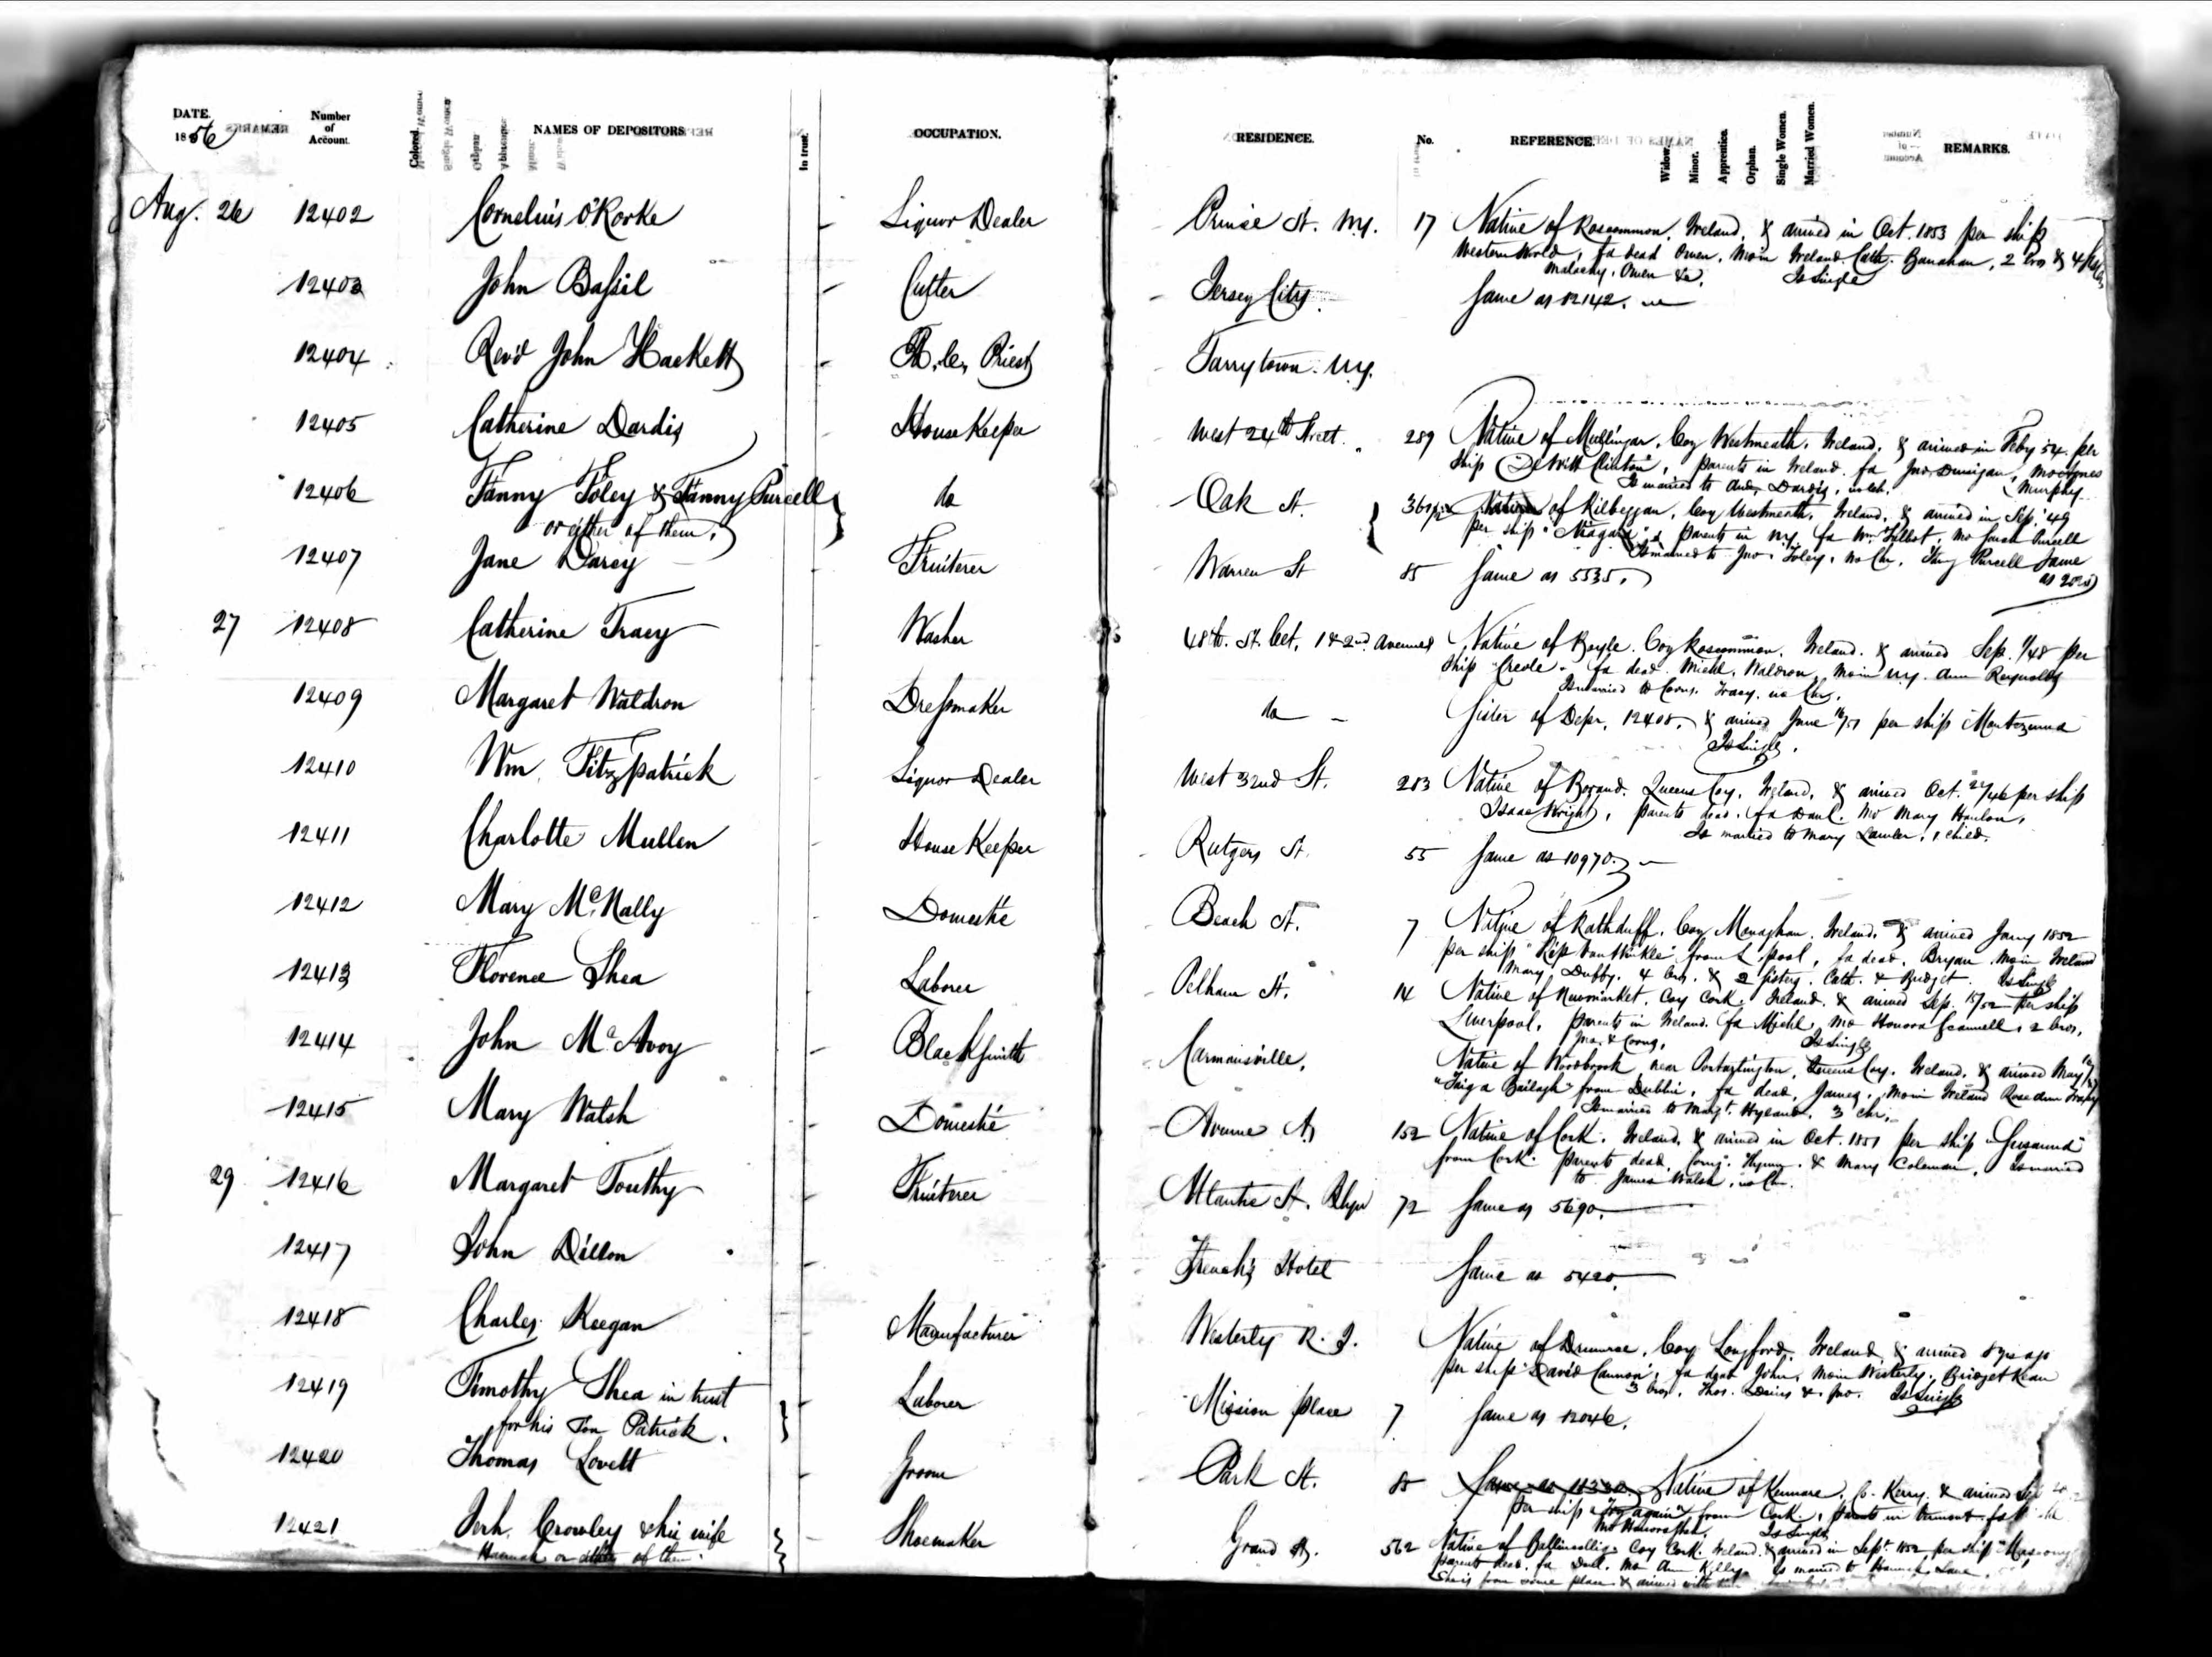 DATE.
1856
Number
of
Account.
Colored.
NAMES OF DEPOSITORS.
In trust.
OCCUPATION.
RESIDENCE.
No.
REFERENCE.
Widow.
Minor.
Apprentice.
Orphan.
Single Women.
Married Women.
REMARKS.
Aug. 26 12402 Cornelius O'Rorke Liquor Dealer Prince St. N.Y. 17 Native of Roscommon, Ireland, & arrived in Oct. 1853 per ship
Western World, fa dead Owen, Mo in Ireland Cath. Banahan, 2 bros & 4 sis
Malachy, Owen &c. Is Single
12403 John Bassil Cutter Jersey City Same as 12142.
12404 Revd John Hackett R.C. Priest Tarrytown N.Y.
12405 Catherine Dardis House Keeper West 24th Street 289 Native of Mullingar, Coy Westmeath, Ireland, & arrived in Feby 54 per
Ship "DeWitt Clinton", parents in Ireland fa Jno. Dunigan, Mo Agnes
Murphy
Is married to And. Dardis, no ch.
12406 Fanny Foley & Fanny Purcell do Oak St. 36 Native of Kilbeggan, Coy Westmeath, Ireland, & arrived in Sep. 49
or either of them. per ship "Niagara", parents in N.Y. fa Wm Talbot, Mo Purcell
Is married to Jno. Foley, no Chr. Fany Purcell Same
12407 Jane Darcy Fruiterer Warren St 85 Same as 5535.
27 12408 Catherine Tracy Washer 48th St. bet. 1 & 2nd Avenues Native of Boyle, Coy Roscommon, Ireland, & arrived Sep. 1/48 per
Ship "Creole", fa dead Michl. Waldron, Mo in N.Y. Ann Reynolds
Is married to Corns. Tracy, no Chr.
12409 Margaret Waldron Dressmaker do Sister of Depr. 12408, & arrived June 16/51 per ship Montezuma
Is Single.
12410 Wm. Fitzpatrick Liquor Dealer West 32nd St. 283 Native of Queens Coy, Ireland, & arrived Oct. 22/46 per ship
Isaac Wright, parents dead, fa Danl. Mo Mary Hanlon,
Is married to Mary Lawler, 1 child.
12411 Charlotte Mullen House Keeper Rutgers St. 55 Same as 10970.
12412 Mary McNally Domestic Beach St. 7 Native of Rathduff, Coy Monaghan, Ireland, & arrived Jany 1852
per ship "Rip Van Winkle" from L'pool, fa dead, Bryan, Mo in Ireland
Mary Duffy, 4 bro. & 2 sisters, Cath. & Bridget. Is Single
12413 Florence Shea Laborer Pelham St. 14 Native of Newmarket, Coy Cork, Ireland, & arrived Sep. 15/52 per ship
Liverpool, parents in Ireland, fa Michl. Mo Honora Scannell, 2 bros,
Jno. & Corns, Is Single
12414 John McAvoy Blacksmith Carmansville, Native of Woodbrook near Portarlington, Queens Coy, Ireland, & arrived May
"Faig a Bailagh" from Dublin, fa dead, James, Mo in Ireland Rose Ann
Is married to Margt. Hyland, 3 chr.
12415 Mary Walsh Domestic Avenue A 152 Native of Cork, Ireland, & arrived in Oct. 1851 per ship "Susanna"
from Cork, parents dead, Corns. & Mary Coleman, Is married
to James Walsh, no Chr.
29 12416 Margaret Touthy Fruiterer Atlantic St. Bklyn 72 Same as 5690.
12417 John Dillon French's Hotel Same as 5420.
12418 Charles Keegan Manufacturer Westerly R.I. Native of Coy Longford, Ireland, & arrived 8 yrs ago
per ship "David Cannon", fa dead John, Mo in Westerly, Bridget Kean
3 bros, Thos. & Jno. Is Single
12419 Timothy Shea in trust Laborer Mission place 7 Same as 12046.
for his Son Patrick.
12420 Thomas Lovett Groom Park St. 85 Native of Kenmare, C. Kerry, & arrived
per ship "Try again" from Cork, parents in Vermont
Is Single
12421 Jerh. Crowley & his wife Shoemaker Grand St. 562 Native of Ballincollig, Coy Cork, Ireland, & arrived in Sept 1852 per ship
Hannah or either of them. parents dead, fa Danl. Mo Ann Kelly Is married to Hannah Lane,
She is from same place & arrived with